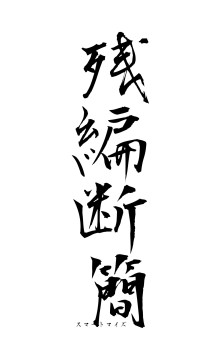 残編断簡
スマートマイズ